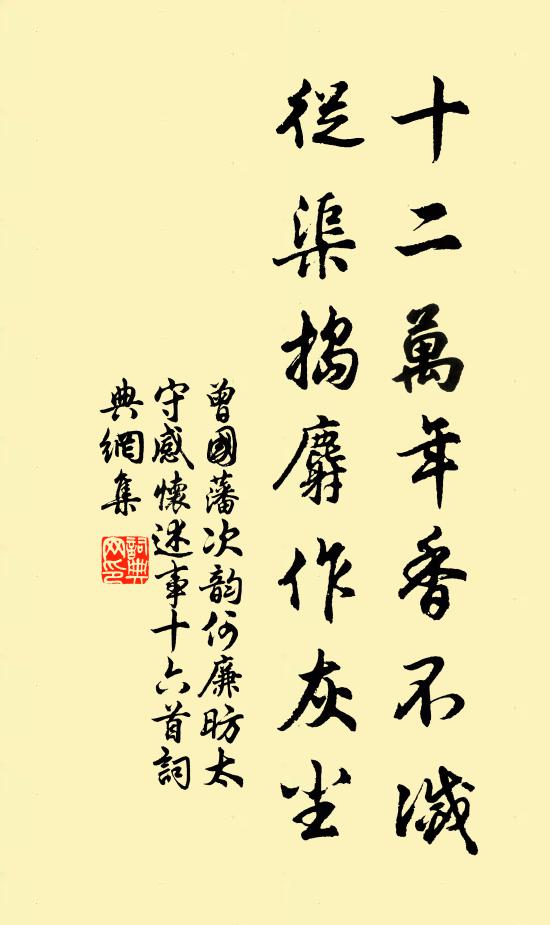 十二萬年香不滅
從渠搗麝作灰尘
曾國藩次韵何廉昉太
守感懷述事十六首詞
典網集
詞典网印